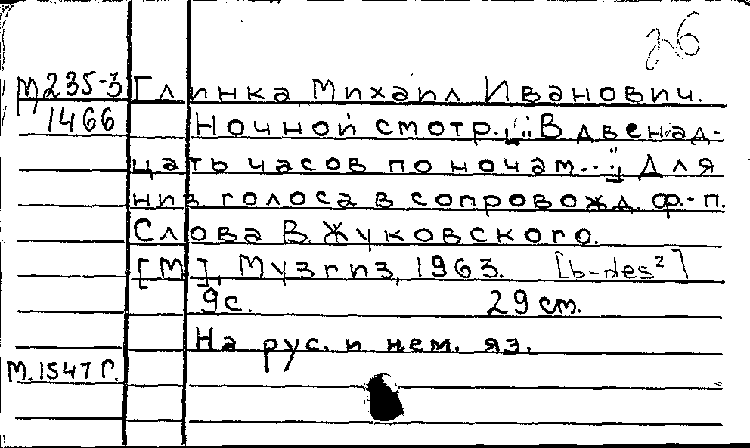 26
М 235-3 Глинка Михаил Иванович.
1466 Ночной смотр. „В двенад-
цать часов по ночам...“ Для
низ голоса в сопровожд. ф.-п.
Слова В. Жуковского.
[М], Музгиз, 1963. [b-des²]
9с. 29 см.
На рус. и нем. яз.
М. 1547 г.